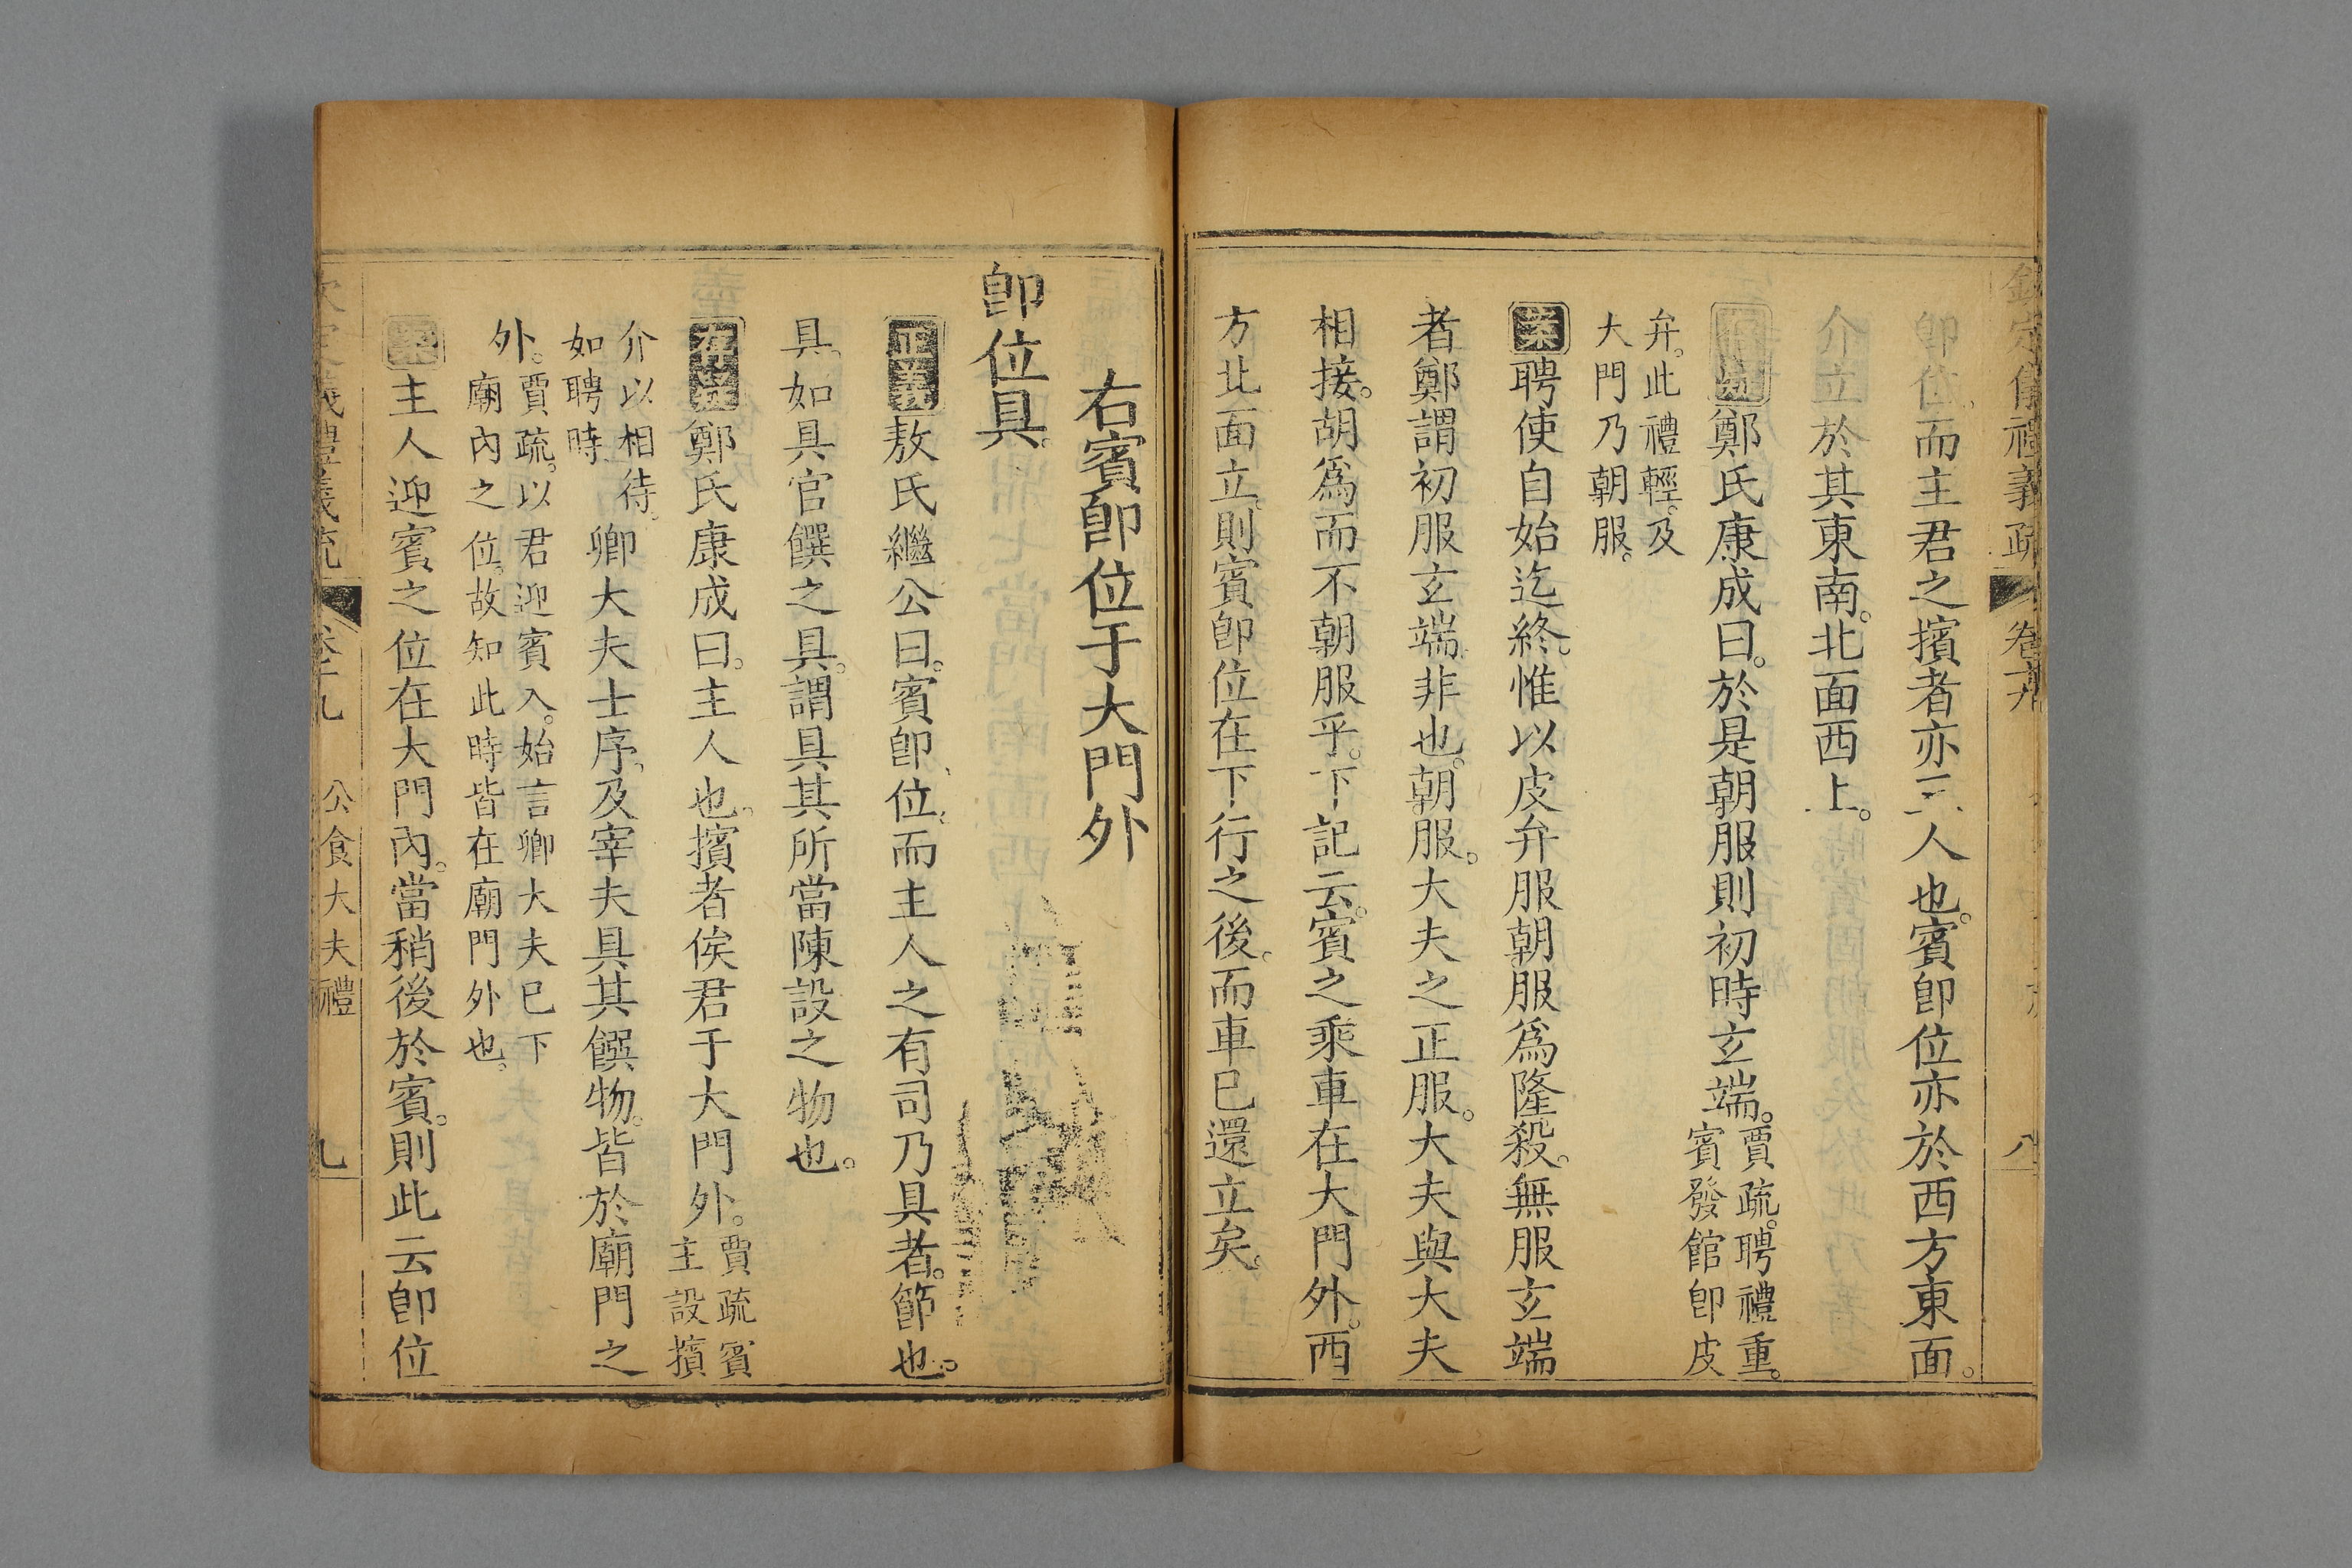 欽定儀禮義疏 卷十九 八
卽位。而主君之擯者亦三人也。賓卽位亦於西方東面。
介立於其東南。北面西上。
存疑鄭氏康成曰。於是朝服則初時玄端。賈疏。聘禮重。賓發館卽皮
弁。此禮輕。及大門乃朝服。
案聘使自始迄終。惟以皮弁服朝服爲隆殺。無服玄端
者鄭謂初服玄端。非也。朝服。大夫之正服。大夫與大夫
相接。胡爲而不朝服乎。下記云。賓之乘車在大門外。西
方北面立。則賓卽位在下行之後。而車已還立矣。
右賓卽位于大門外
卽位具。
正義敖氏繼公曰。賓卽位。而主人之有司乃具者。節也。
具。如具官饌之具。謂具其所當陳設之物也。
存疑鄭氏康成曰。主人也。擯者俟君于大門外。賈疏賓主設擯
介以相待。如聘時卿大夫士序。及宰夫具其饌物。皆於廟門之
外。賈疏。以君迎賓入。始言卿大夫已下廟內之位。故知此時皆在廟門外也。
案主人迎賓之位在大門內。當稍後於賓。則此云卽位
欽定儀禮義疏 卷十九 公食大夫禮 九